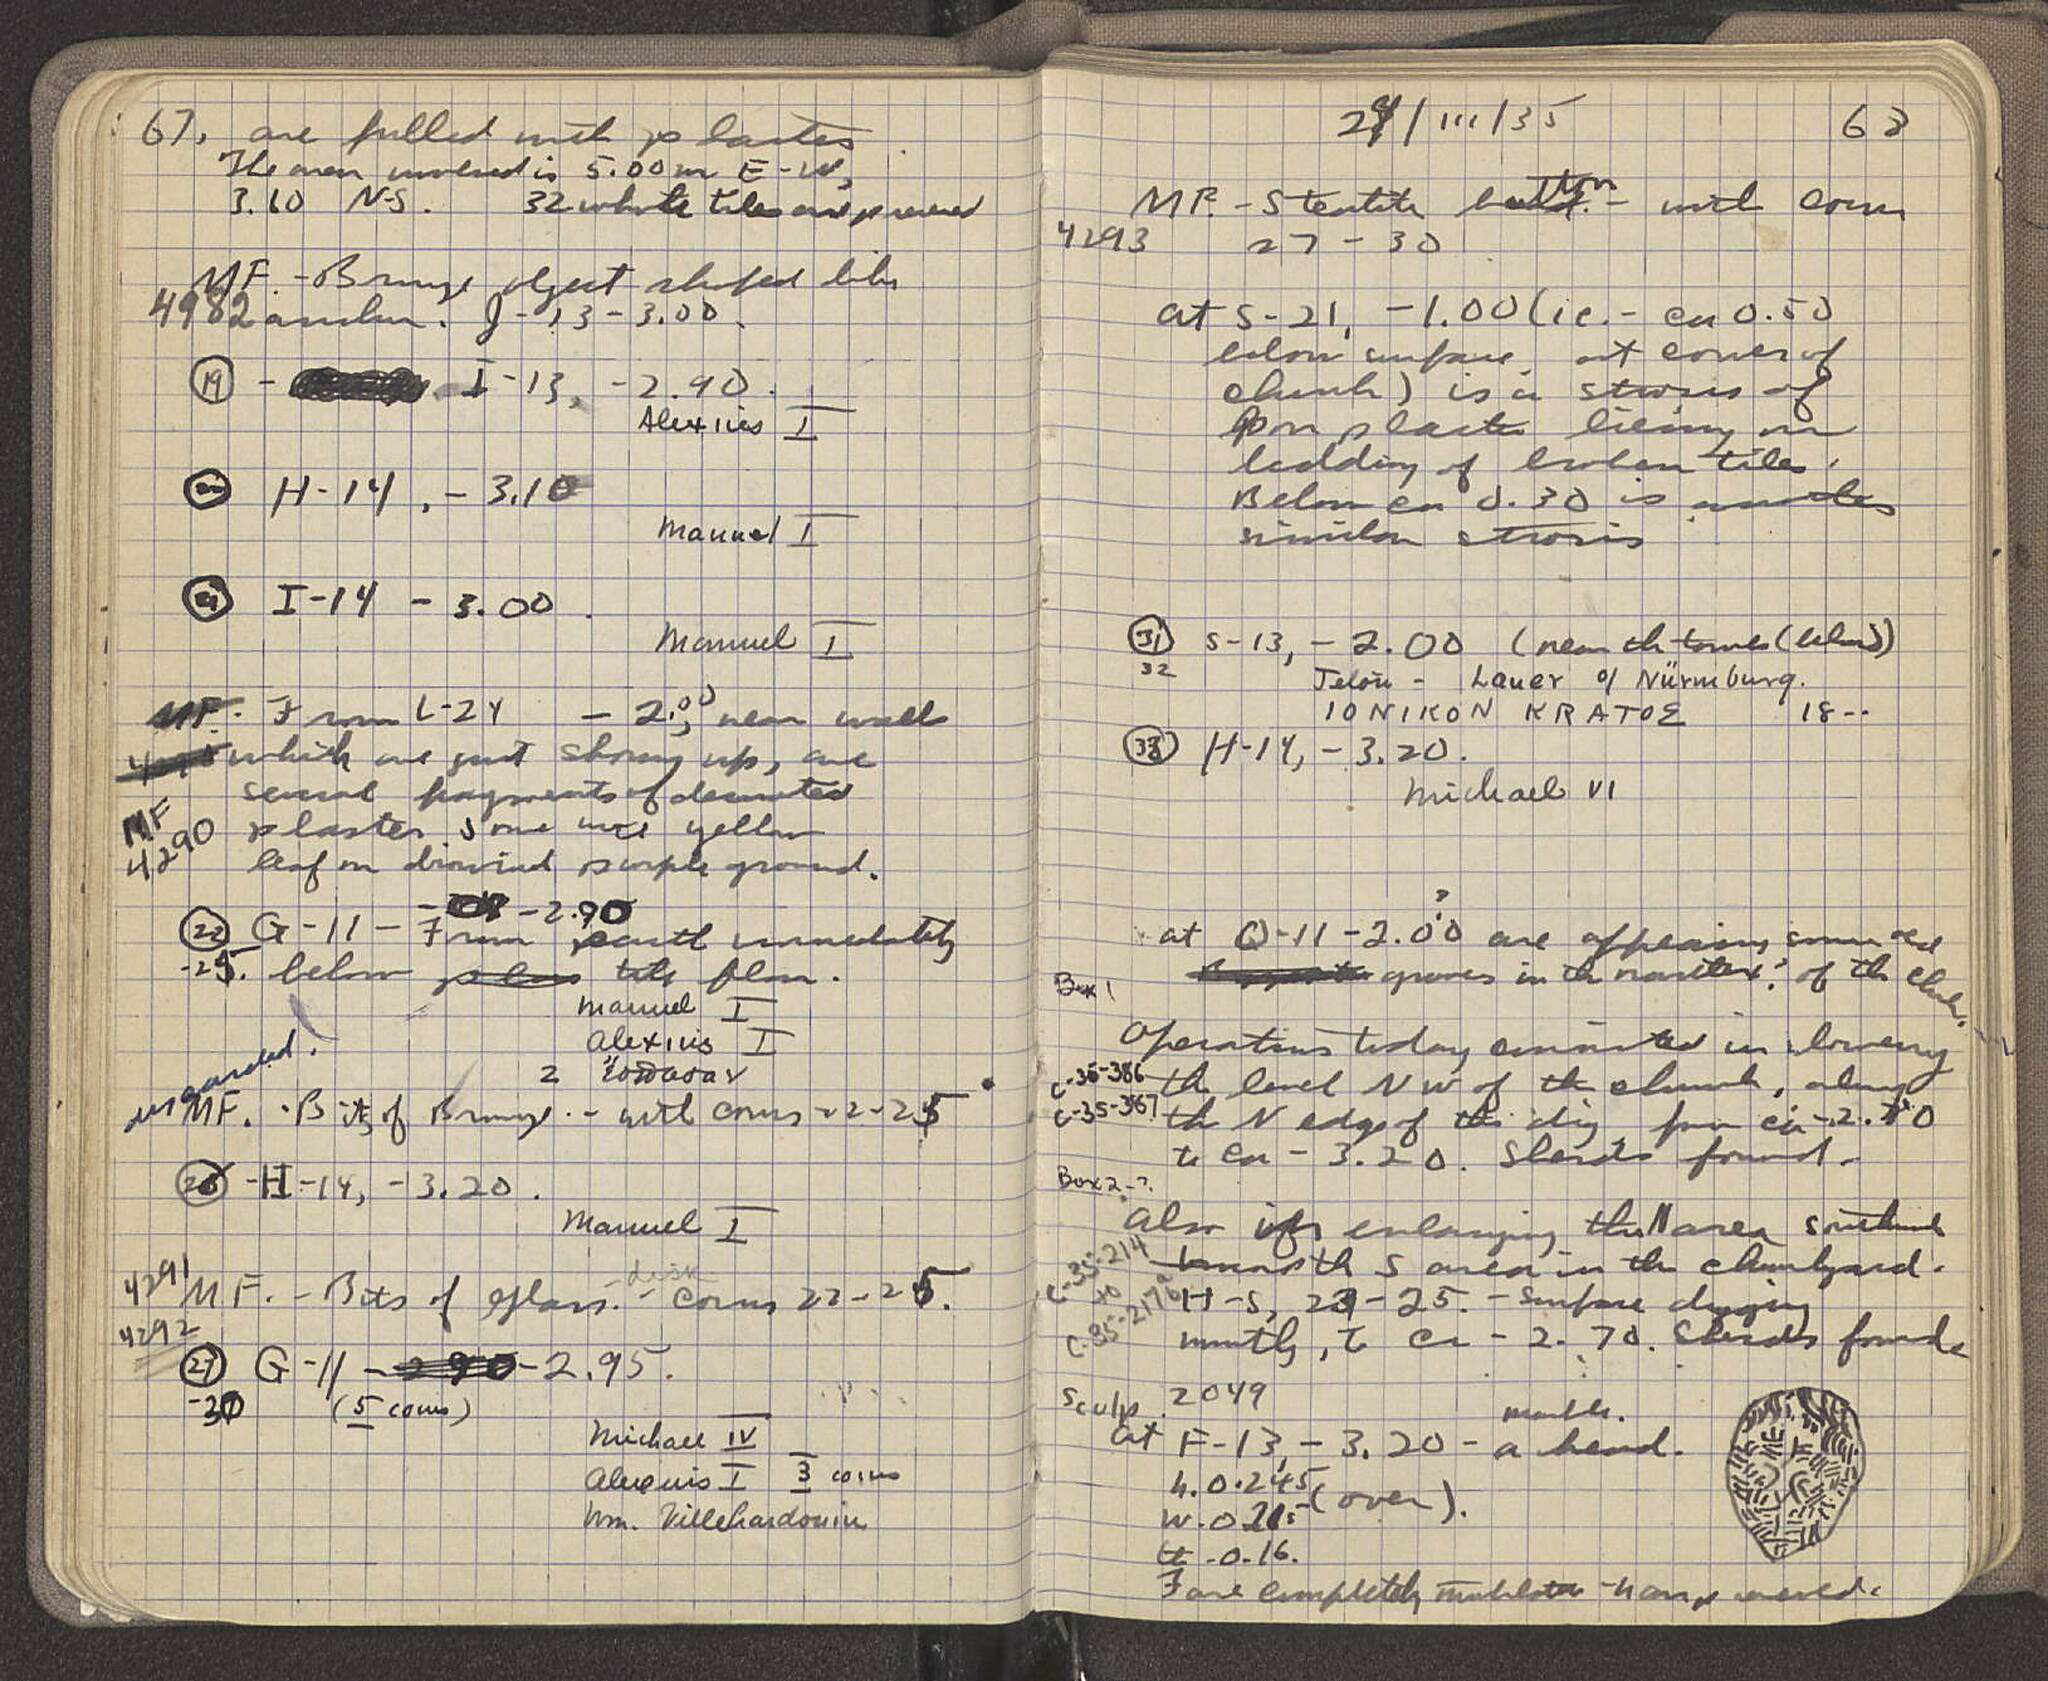 67. are filled with plaster.
The area uncovered is 5.00 m E-W,
3.10 N-S. 32 whole tiles are preserved
MF. - Bronze object shaped like
4982 anchor. J-13 - 3.00.
19 - I-13, -2.90.
Alexius I
20 H-14, -3.10
Manuel I
21 I-14 - 3.00.
Manuel I
MF. From L-24 - 2.00 near walls
which are just showing up, are
several fragments of decorated
MF
4290 plaster some with yellow
leaf on purple ground.
22 G-11 - -2.90
-25. From earth immediately
below plas tile floor.
Manuel I
Alexius I
2
discarded.
MF. - Bits of Bronze. - with coins 22-25
26 - H-14, -3.20.
Manuel I
4291 MF. - Bits of Glass. - disk - coins 22-25.
4292
27 G-11 - 2 90 - 2.95.
-30 (5 coins)
Michael IV
Alexius I 3 coins
Wm. Villehardouin
29/III/35 68
MF. - Steatite button. - with coins
4293 27-30
at S-21, -1.00 (i.e. - ca 0.50
below surface at corner of
church) is a strosis of
plaster lieing on
bedding of broken tiles.
Below ca 0.30 is another
similar strosis
31 S-13, -2.00 (near the tower (below))
32 Jeton - Lauer of Nürnburg.
IONIKON KRATOΣ 18--
33 H-14, -3.20.
Michael VI
?
at Q-11 -2.00 are appearing some
graves in the narthex? of the church.
Box 1
Operations today consisted in lowering
C-35-386 the level NW of the church, along
C-35-387 the N edge of the dig from ca -2.70
to ca - 3.20. Sherds found.
Box 2-?
Also in enlarging the N area southward
towards the S area in the churchyard.
C-35-214
to
C-35-217a
H-S, 23-25. - surface digging
mostly, to ca - 2.70. Sherds found.
Sculp. 2049
marble.
at F-13, - 3.20 - a head.
h. 0.245
(over).
w. 0.215
th. 0.16.
Face completely mutilated